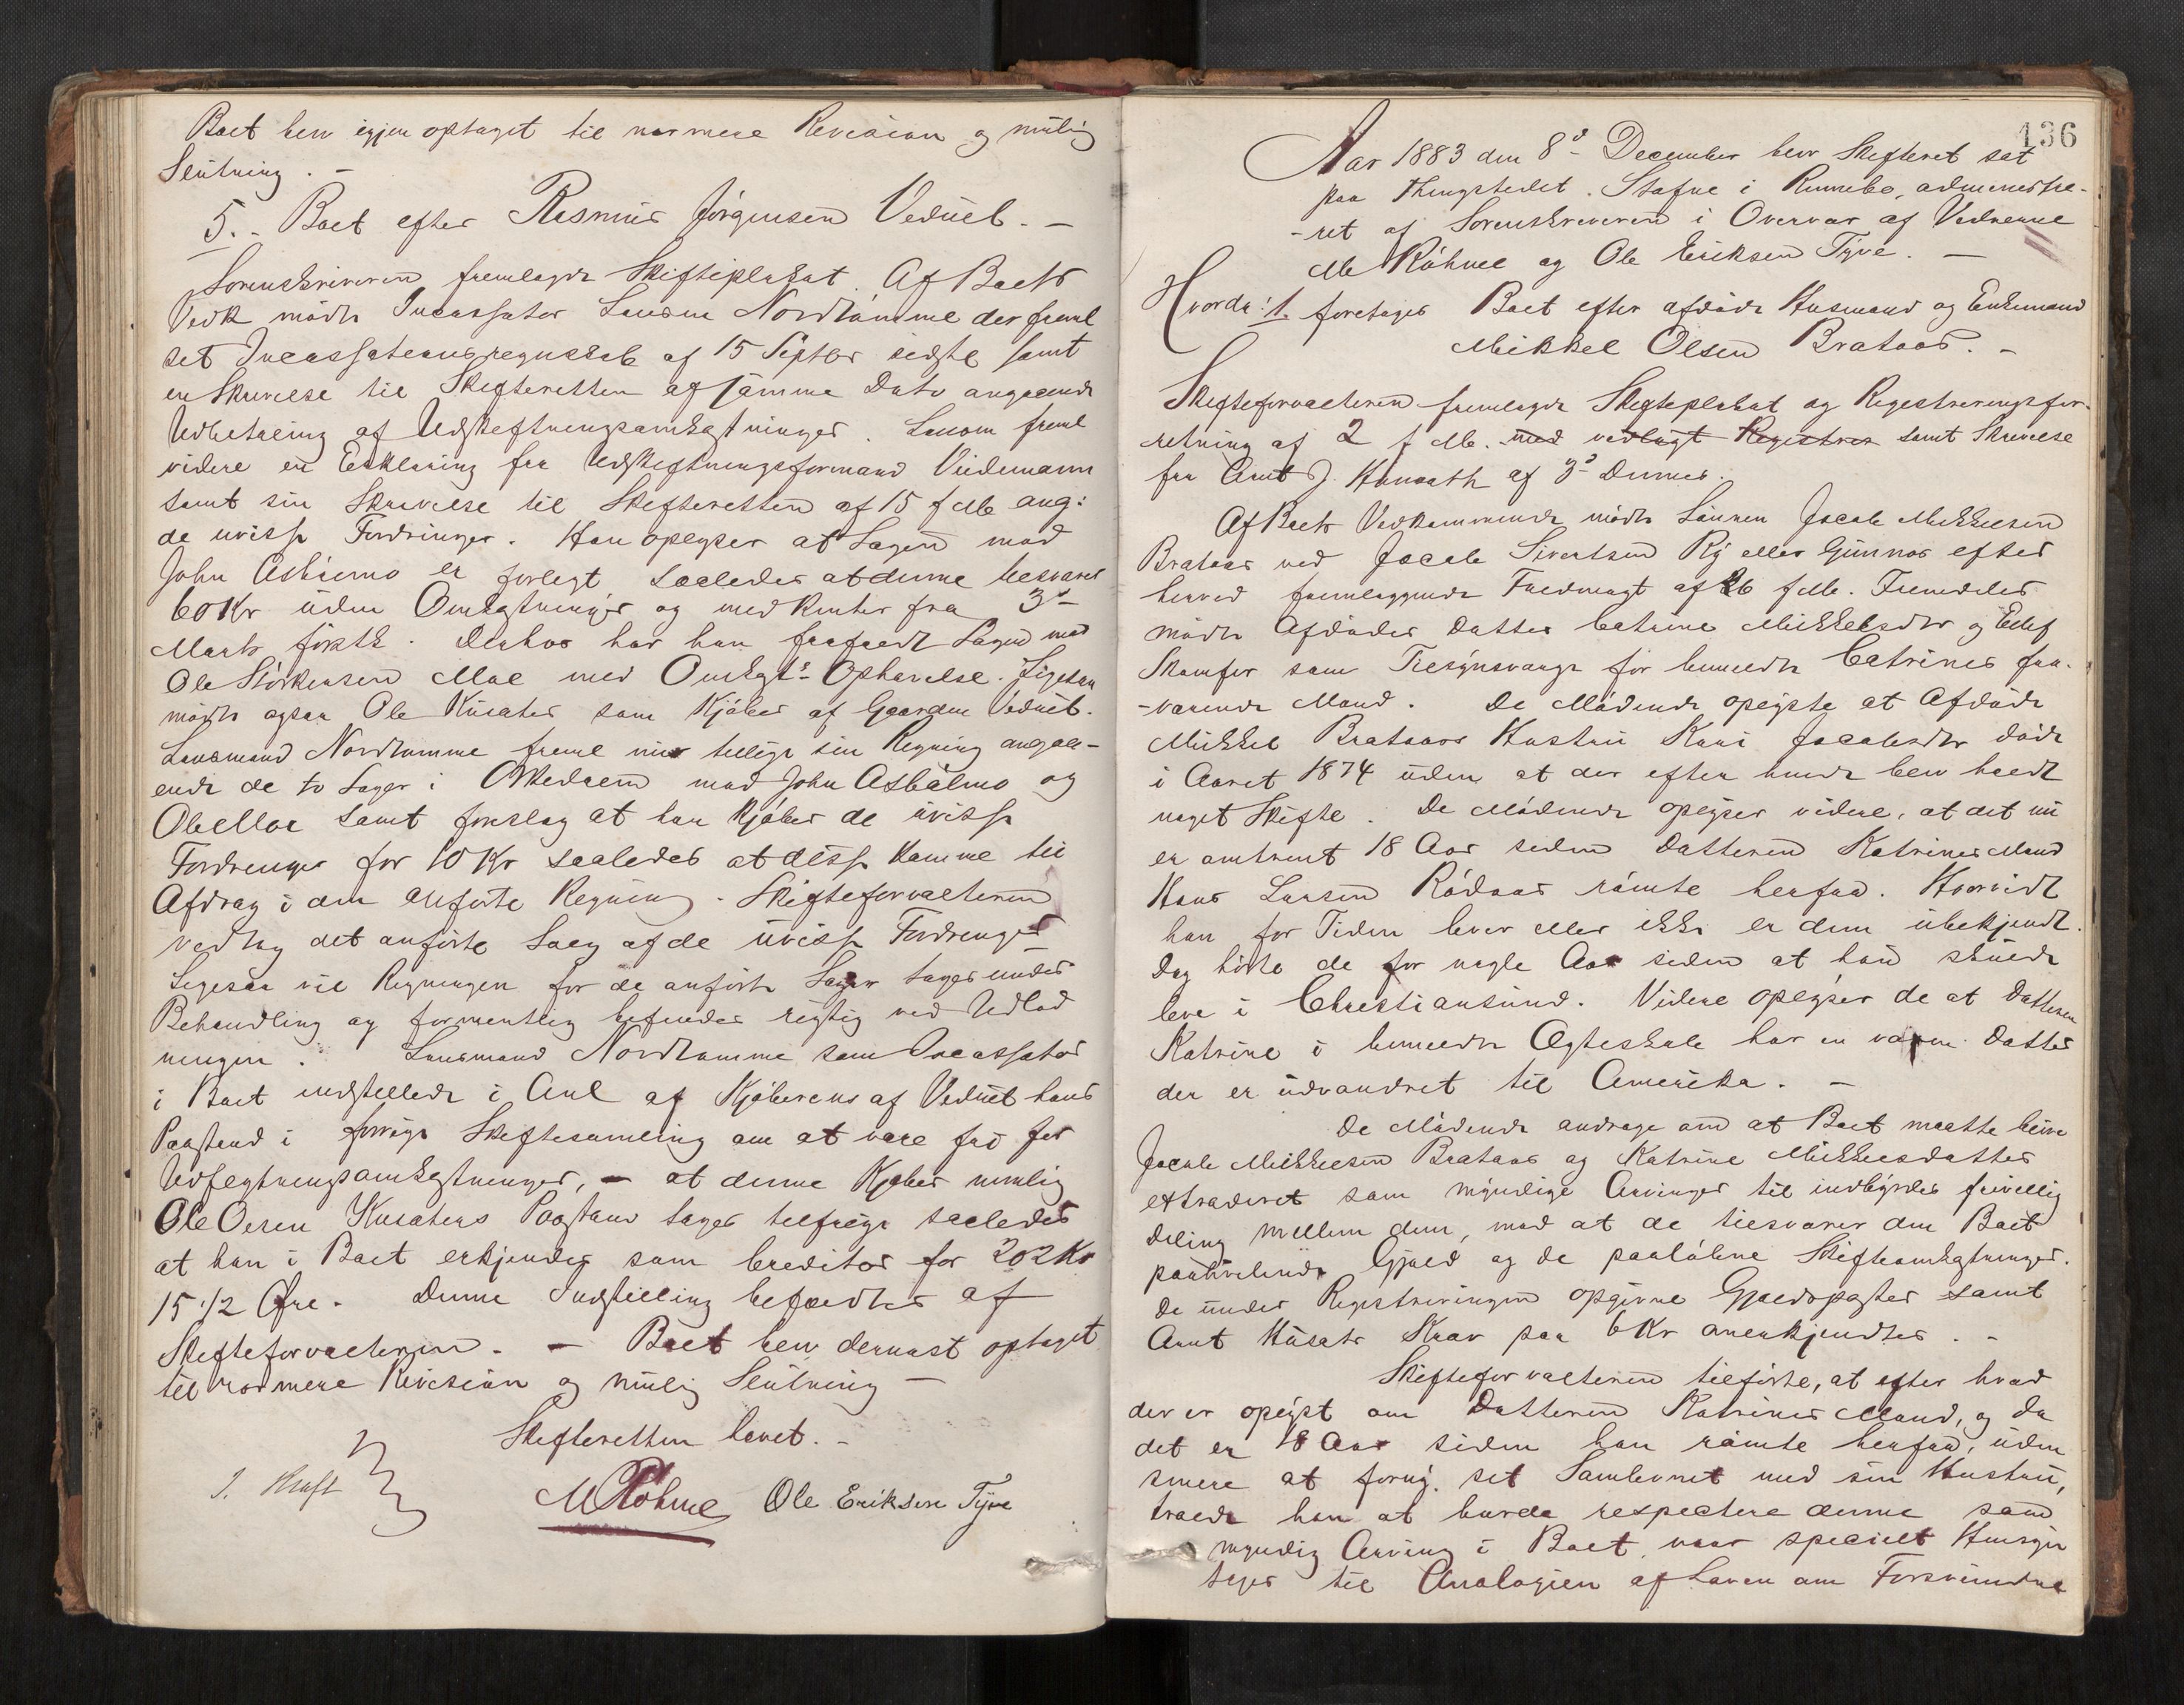 Boet blev igjen optaget til nærmere Revision og mulig
Slutning. –
5. – Boet efter Rasmus Jörgensen Veduel. –
Sorenskriveren fremlagde Skifteplakat. Af Boets
Vedk mödte Incassator Lensm Nordtömme der freml
set Incassationsregnskab af 15 Septbr sidstl samt
en Skrivelse til Skifteretten af samme Dato angaaende
Udbetaling af Udskiftningsomkostninger. Lensm freml
videre en Erklæring fra Udskiftningsformand Viidemann
samt sin Skrivelse til Skifteretten af 15 f Mb ang:
de uvisse Fordringer. Han oplyser at Sagen mod
John Asbiörmo er forligt saaledes at denne tilsvarer
60 Kr uden Omkostninger og med Renter fra 3die
Marts förstk. Derhos har han frafaldt Sagen mod
Ole Störkersen Moe med Omkgts Ophævelse. Ligesaa
mödte ogsaa Ole Kusater som Kjöber af Gaarden Veduel.
Lensmand Nordtömme freml nu tillige sin Regning angaa-
ende de to Sager i Orkedalen mod John Asbölmo og
Ole Moe samt forslag at han kjöber de uvisse
Fordringer for 10 Kr saaledes at disse komme til
Afdrag i den anförte Regning. Skifteforvalteren
vedtog det anförte Salg af de uvisse Fordringer
Ligesaa vil Regningen for de anförte Sager tages under
Behandling og formentlig befindes rigtig ved Udlod
ningen. Lensmand Nordtömme som Incassator
i Boet indstillede i Anl af Kjöberens af Veduel hans
Paastand i forrige Skiftesamling om at være fri for
Udskiftningsomkostninger, – at denne Kjöber nemlig
Ole Olsen Kusaters Paastand tages tilfölge saaledes
at han i Boet erkjendes som Creditor for 202 Kr
15 1/2 Øre. Denne Indstilling bifaldtes af
Skifteforvalteren. – Boet blev dernæst optaget
til nærmere Revision og mulig Slutning –
Skifteretten hævet. –
J. Kraft M Röhme Ole Eriksen Tyve
136
Aar 1883 den 8de December blev Skifteret sat
paa Thingstedet Stafne i Rennebo, administre-
-ret af Sorenskriveren i Overvær af Vidnerne
M Röhme og Ole Eriksen Tyve. –
Hvorda: 1. foretages Boet efter afdöde Husmand og Enkemand
Mikkel Olsen Brataas. –
Skifteforvalteren fremlagde Skifteplakat og Registreringsfor-
retning af 2 f Mb. med vedlagt Registrer samt Skrivelse
fra Arnt J. Havsath af 3die Dennes.
Af Boets Vedkommende mödte Sönnen Jacob Mikkelsen
Brataas ved Jacob Sivertsen Ry eller Gunnas efter
herved fremlæggende Fuldmagt af 26 f Mb. Fremdeles
mödte Afdödes Datter Catrine Mikkelsdtr og Edlef
Skamfer som Tilsynsværge for bemeldte Catrines fra-
-værende Mand. De Mödende oplyste at Afdöde
Mikkel Brataas Hustru Kari Jacobsdtr döde
i Aaret 1874 uden at der efter hende blev holdt
noget Skifte. De Mödende oplyser videre, at det nu
er omtrent 18 Aar siden Datteren Katrines Mand
Hans Larsen Rödaas römte herfra. Hvorvidt
han for Tiden lever eller ikke er dem ubekjendt.
Dog hörte de for nogle Aar siden at han skulde
leve i Christiansund. Videre oplyser de at Datteren
Katrine i bemeldte Ægteskab har en voxen Datter
der er udvandret til Amerika. –
De Mödende androge om at Boet maatte blive
Jacob Mikkelsen Brataas og Katrine Mikkelsdatter
extraderet som myndige Arvinger til indbyrdes frivillig
deling mellem dem, mod at de tilsvarer den Boet
paahvilende Gjæld og de paalöbne Skifteomkostninger.
De under Registreringen opgivne Gjældsposter samt
Arnt Husats Krav paa 6 Kr anerkjendtes. –
Skifteforvalteren tilförte, at efter hvad
der er oplyst om Datteren Katrines Mand, og da
det er 18 Aar siden han römte herfra, uden
senere at forny set Samlevnet med sin Hustru,
troede han at burde respectere denne som
myndig Arving i Boet, naar specielt Hensyn
tages til Analogien af Loven om Forsvundne